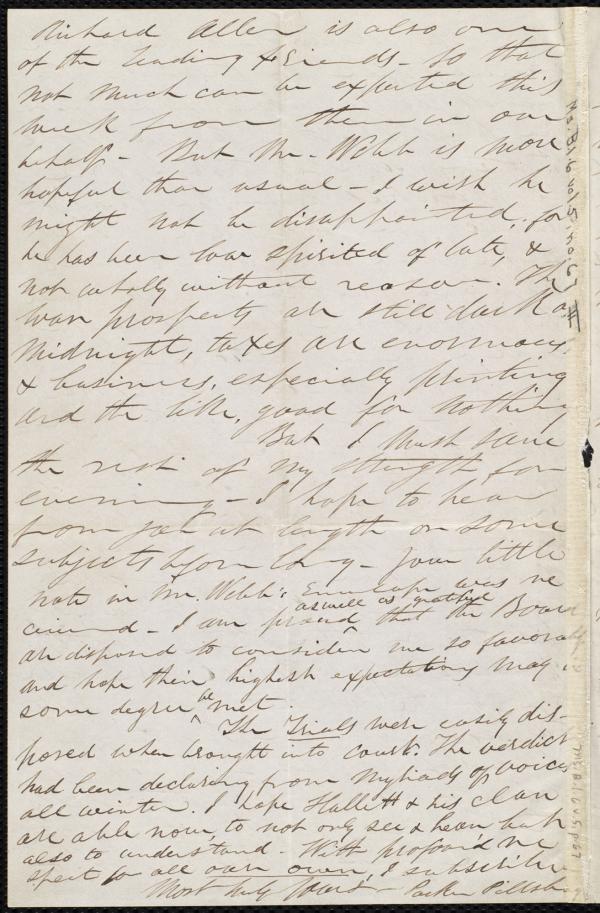 Richard Allen is also one
of the leading friends - so that
not much can be expected this
week from them in our
behalf - But Mr. Webb is more
hopeful than usual - I wish he
might not be disappointed, for
he has been low spirited of late, &
not wholly without reason. The
war prospects are still dark as
midnight, taxes are enormous,
& business, especially printing
and the like, good for nothing
But I must save
the rest of my strength for
evening - I hope to hear
from you at length on some
subjects before long - your little
note in Mr. Webb's Envelope was re
ceived - I am proud as well as grateful that the Board
are disposed to consider me so favorably
and hope their highest expectations may in
some degree be met.
The Trials were easily dis-
posed when brought into court. The verdict
had been declaring from myriads of voices
all winter. I hope Hallett & his clan
are able now, to not only see & hear but
also to understand. With profound re
spect for all our own, I subscribe
Most truly Yours - Parker Pillsbury
Ms. B.1.6 vol 5, no. 67